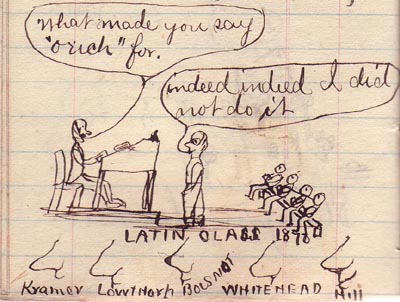 What made you say
"orich" for.
indeed indeed I did
not do it
LATIN CLASS 1898
Kramer Lowthorp BOLSNOT WHITEHEAD Hill